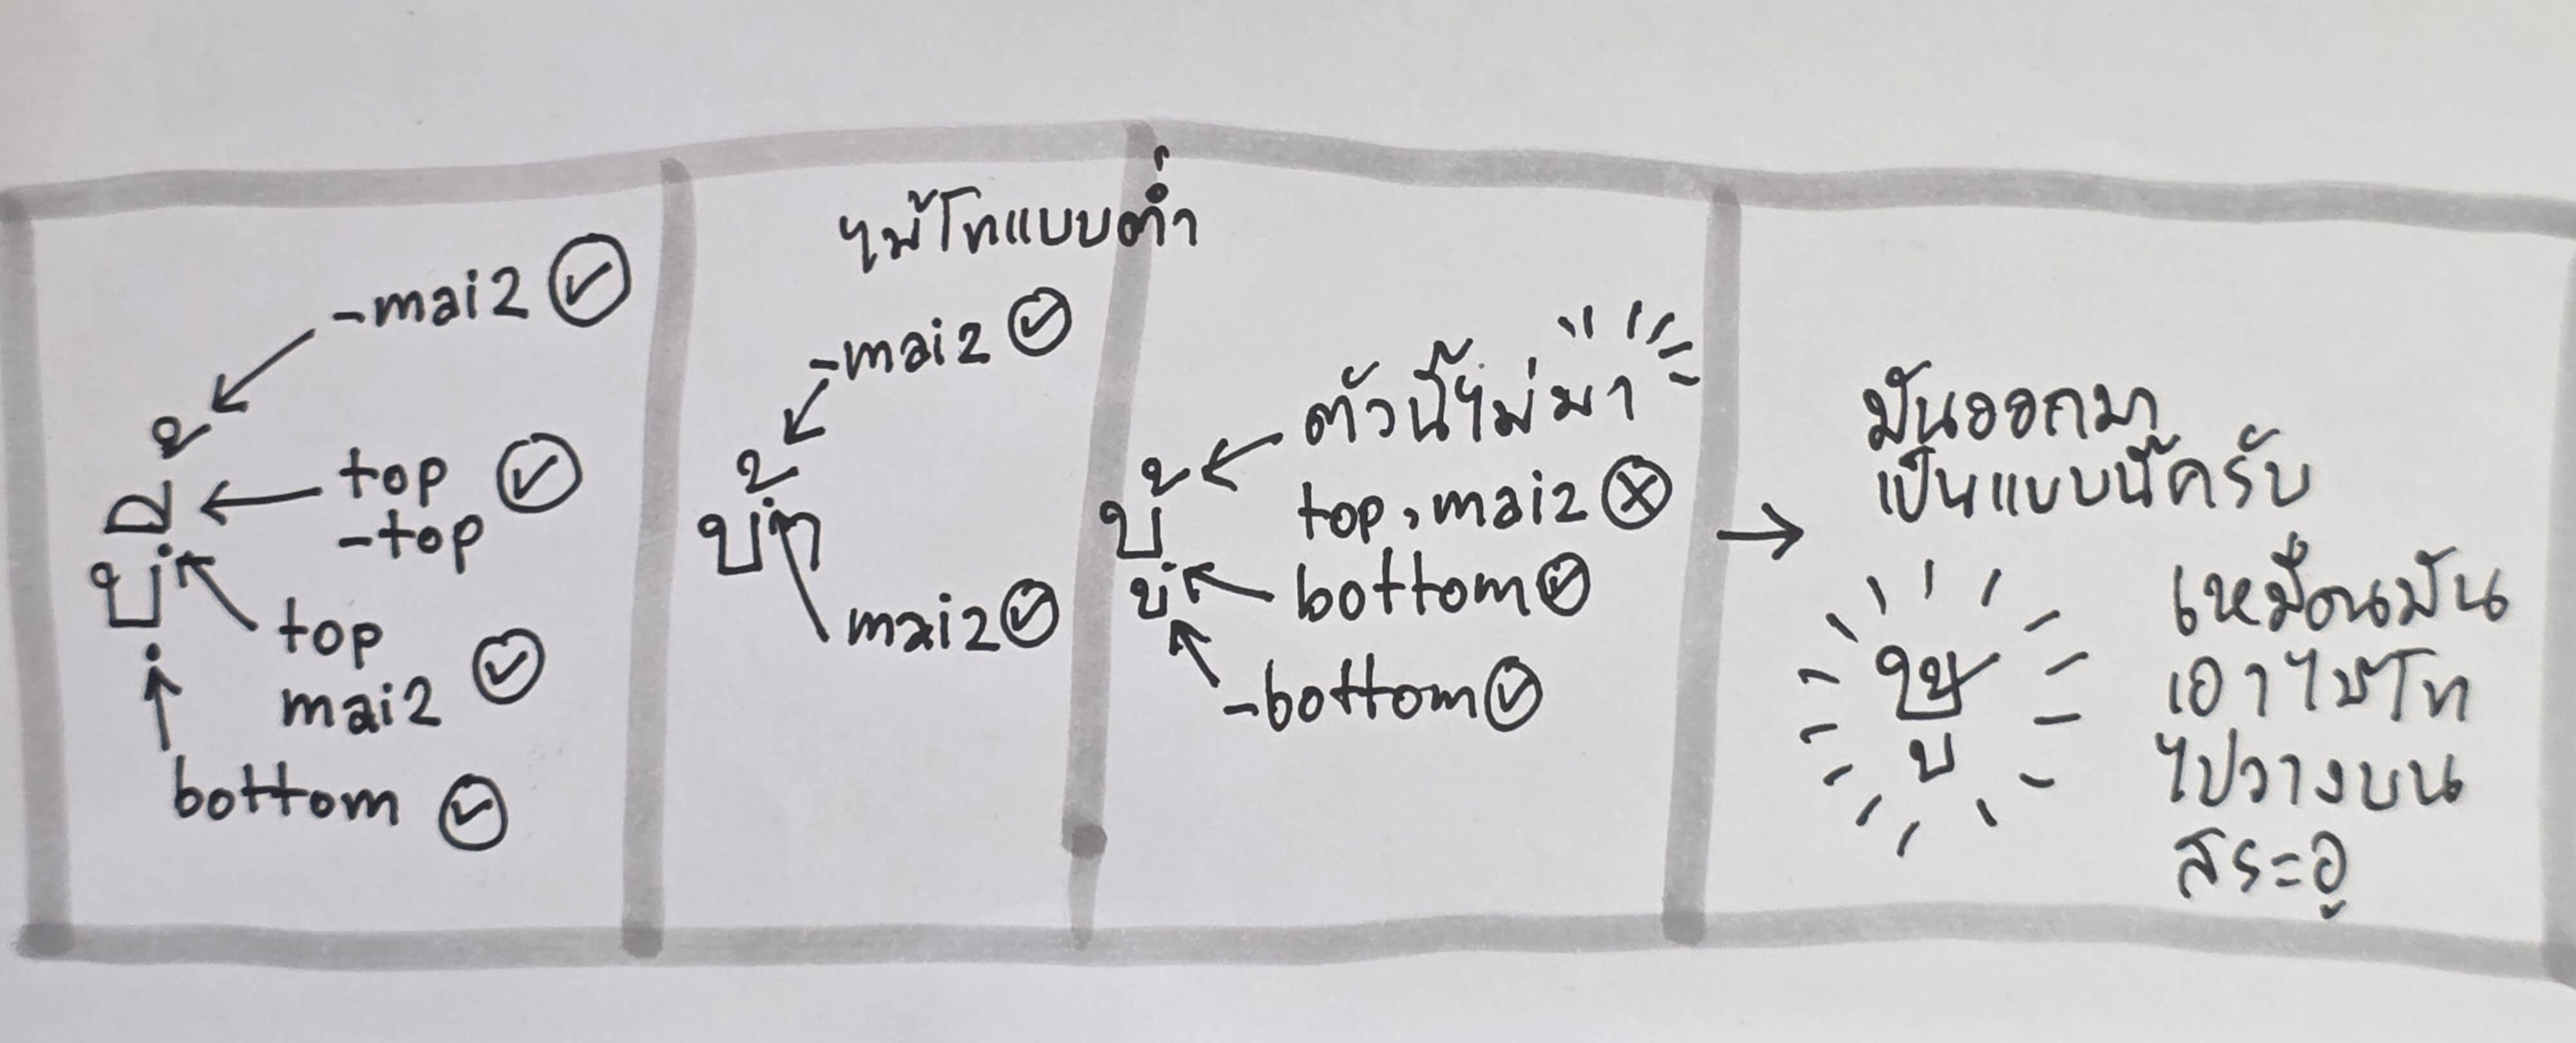 -mai2
top
-top
top
mai2
bottom
ไม้โทแบบต่ำ
-mai2
mai2
ตัวนี้ไม่มา
top, mai2
bottom
-bottom
มันออกมา
เป็นแบบนี้ครับ
เหมือนมัน
เอาไม้โท
ไปวางบน
สระอู